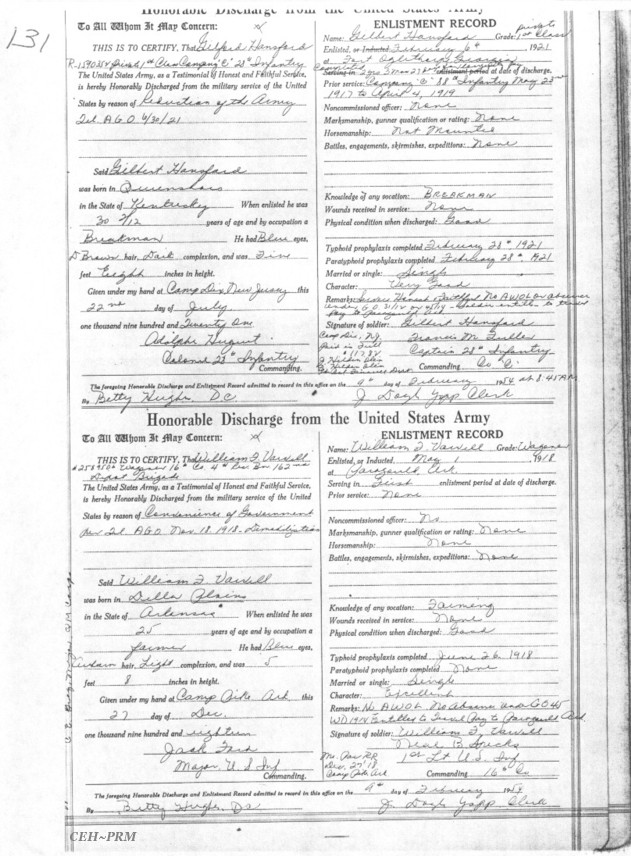 131
Honorable Discharge from the United States Army
To All Whom It May Concern:
THIS IS TO CERTIFY, That Gilford Hansford
Company "C" 28th Infantry
The United States Army, as a Testimonial of Honest and Faithful Service,
is hereby Honorably Discharged from the military service of the United
States by reason of Reduction of the Army
Tel A G O 6/30/21
Said Gilbert Hansford
was born in Owensboro
in the State of Kentucky When enlisted he was
30 2/12 years of age and by occupation a
Breakman He had Blue eyes,
D Brown hair, Dark complexion, and was Five
feet Eight inches in height.
Given under my hand at Camp Dix New Jersey this
22nd day of July
one thousand nine hundred and Twenty One
Adolphe Huguet
Colonel 28th Infantry
Commanding.
ENLISTMENT RECORD
Name: Gilbert Hansford Grade: private 1st Class
Enlisted, or Inducted February 6th, 1921
at Fort Oglethorpe Georgia
enlistment period at date of discharge.
Prior service: Company "C" 38th Infantry May 25th
1917 to April 4, 1919
Noncommissioned officer: None
Marksmanship, gunner qualification or rating: None
Horsemanship: Not Mounted
Battles, engagements, skirmishes, expeditions: None
Knowledge of any vocation: BREAKMAN
Wounds received in service: None
Physical condition when discharged: Good
Typhoid prophylaxis completed February 28th 1921
Paratyphoid prophylaxis completed February 28th 1921
Married or single: Single
Character: Very Good
Remarks: Service Honest Faithful No A W O L or absence
under G O 31/12 or 45/14 Soldier entitled to travel
pay to Paragould Ark
Signature of soldier: Gilbert Hansford
Camp Dix, NJ
Paid in Full
Francis M. Fuller
Captain 28th Infantry
Commanding Co "C"
The foregoing Honorable Discharge and Enlistment Record admitted to record in this office on the 9th day of February 1954 at 8:45 AM
By Betty Hughes, DC
J. Doyle Yopp Clerk
Honorable Discharge from the United States Army
To All Whom It May Concern:
THIS IS TO CERTIFY, That William F. Vawell
Wagoner 16th Co. 4th Dev Bn 162nd
Depot Brigade
The United States Army, as a Testimonial of Honest and Faithful Service,
is hereby Honorably Discharged from the military service of the United
States by reason of Convenience of Government
per Tel AGO Nov. 18, 1918. Demobilization
Said William F. Vawell
was born in Della Plains
in the State of Arkansas When enlisted he was
25 years of age and by occupation a
farmer He had Blue eyes,
hair, Light complexion, and was 5
feet 8 inches in height.
Given under my hand at Camp Pike Ark this
27 day of Dec.
one thousand nine hundred and eighteen
Jack Ford
Major U S Inf
Commanding.
ENLISTMENT RECORD
Name: William F. Vawell Grade: Wagoner
Enlisted, or Inducted May 1, 1918
at Paragould Ark
Serving in First enlistment period at date of discharge.
Prior service: None
Noncommissioned officer: No
Marksmanship, gunner qualification or rating: None
Horsemanship: None
Battles, engagements, skirmishes, expeditions: None
Knowledge of any vocation: Farming
Wounds received in service: None
Physical condition when discharged: Good
Typhoid prophylaxis completed June 26, 1918
Paratyphoid prophylaxis completed None
Married or single: Single
Character: Excellent
Remarks: No A W O L. No Absence under G O 45
WD 1914 Entitled to Travel Pay to Paragould Ark
Signature of soldier: William F. Vawell
Dec. 27 '18
Camp Pike Ark
1st Lt U.S. Inf
Commanding 16th Co
The foregoing Honorable Discharge and Enlistment Record admitted to record in this office on the 9th day of February 1954
By Betty Hughes, Dc
J. Doyle Yopp Clerk
CEH~PRM